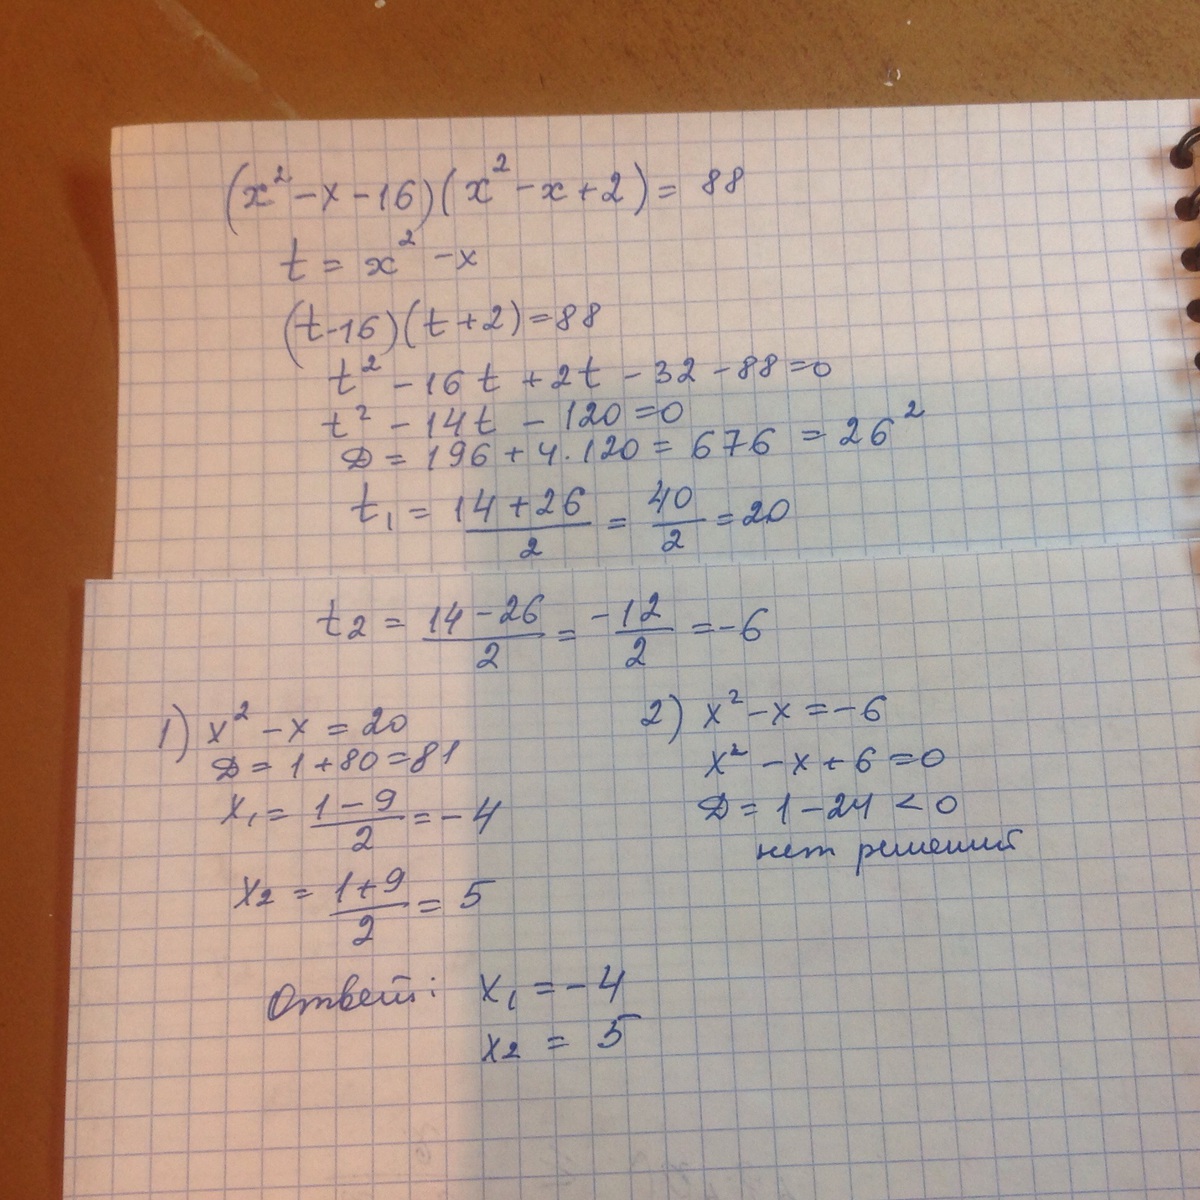 (x² - x - 16)(x² - x + 2) = 88
t = x² - x
(t - 16)(t + 2) = 88
t² - 16t + 2t - 32 - 88 = 0
t² - 14t - 120 = 0
D = 196 + 4 · 120 = 676 = 26²
t₁ = (14 + 26)/2 = 40/2 = 20
t₂ = (14 - 26)/2 = -12/2 = -6
1) x² - x = 20
D = 1 + 80 = 81
x₁ = (1 - 9)/2 = -4
x₂ = (1 + 9)/2 = 5
2) x² - x = -6
x² - x + 6 = 0
D = 1 - 24 < 0
нет решений
Ответ: x₁ = -4
x₂ = 5